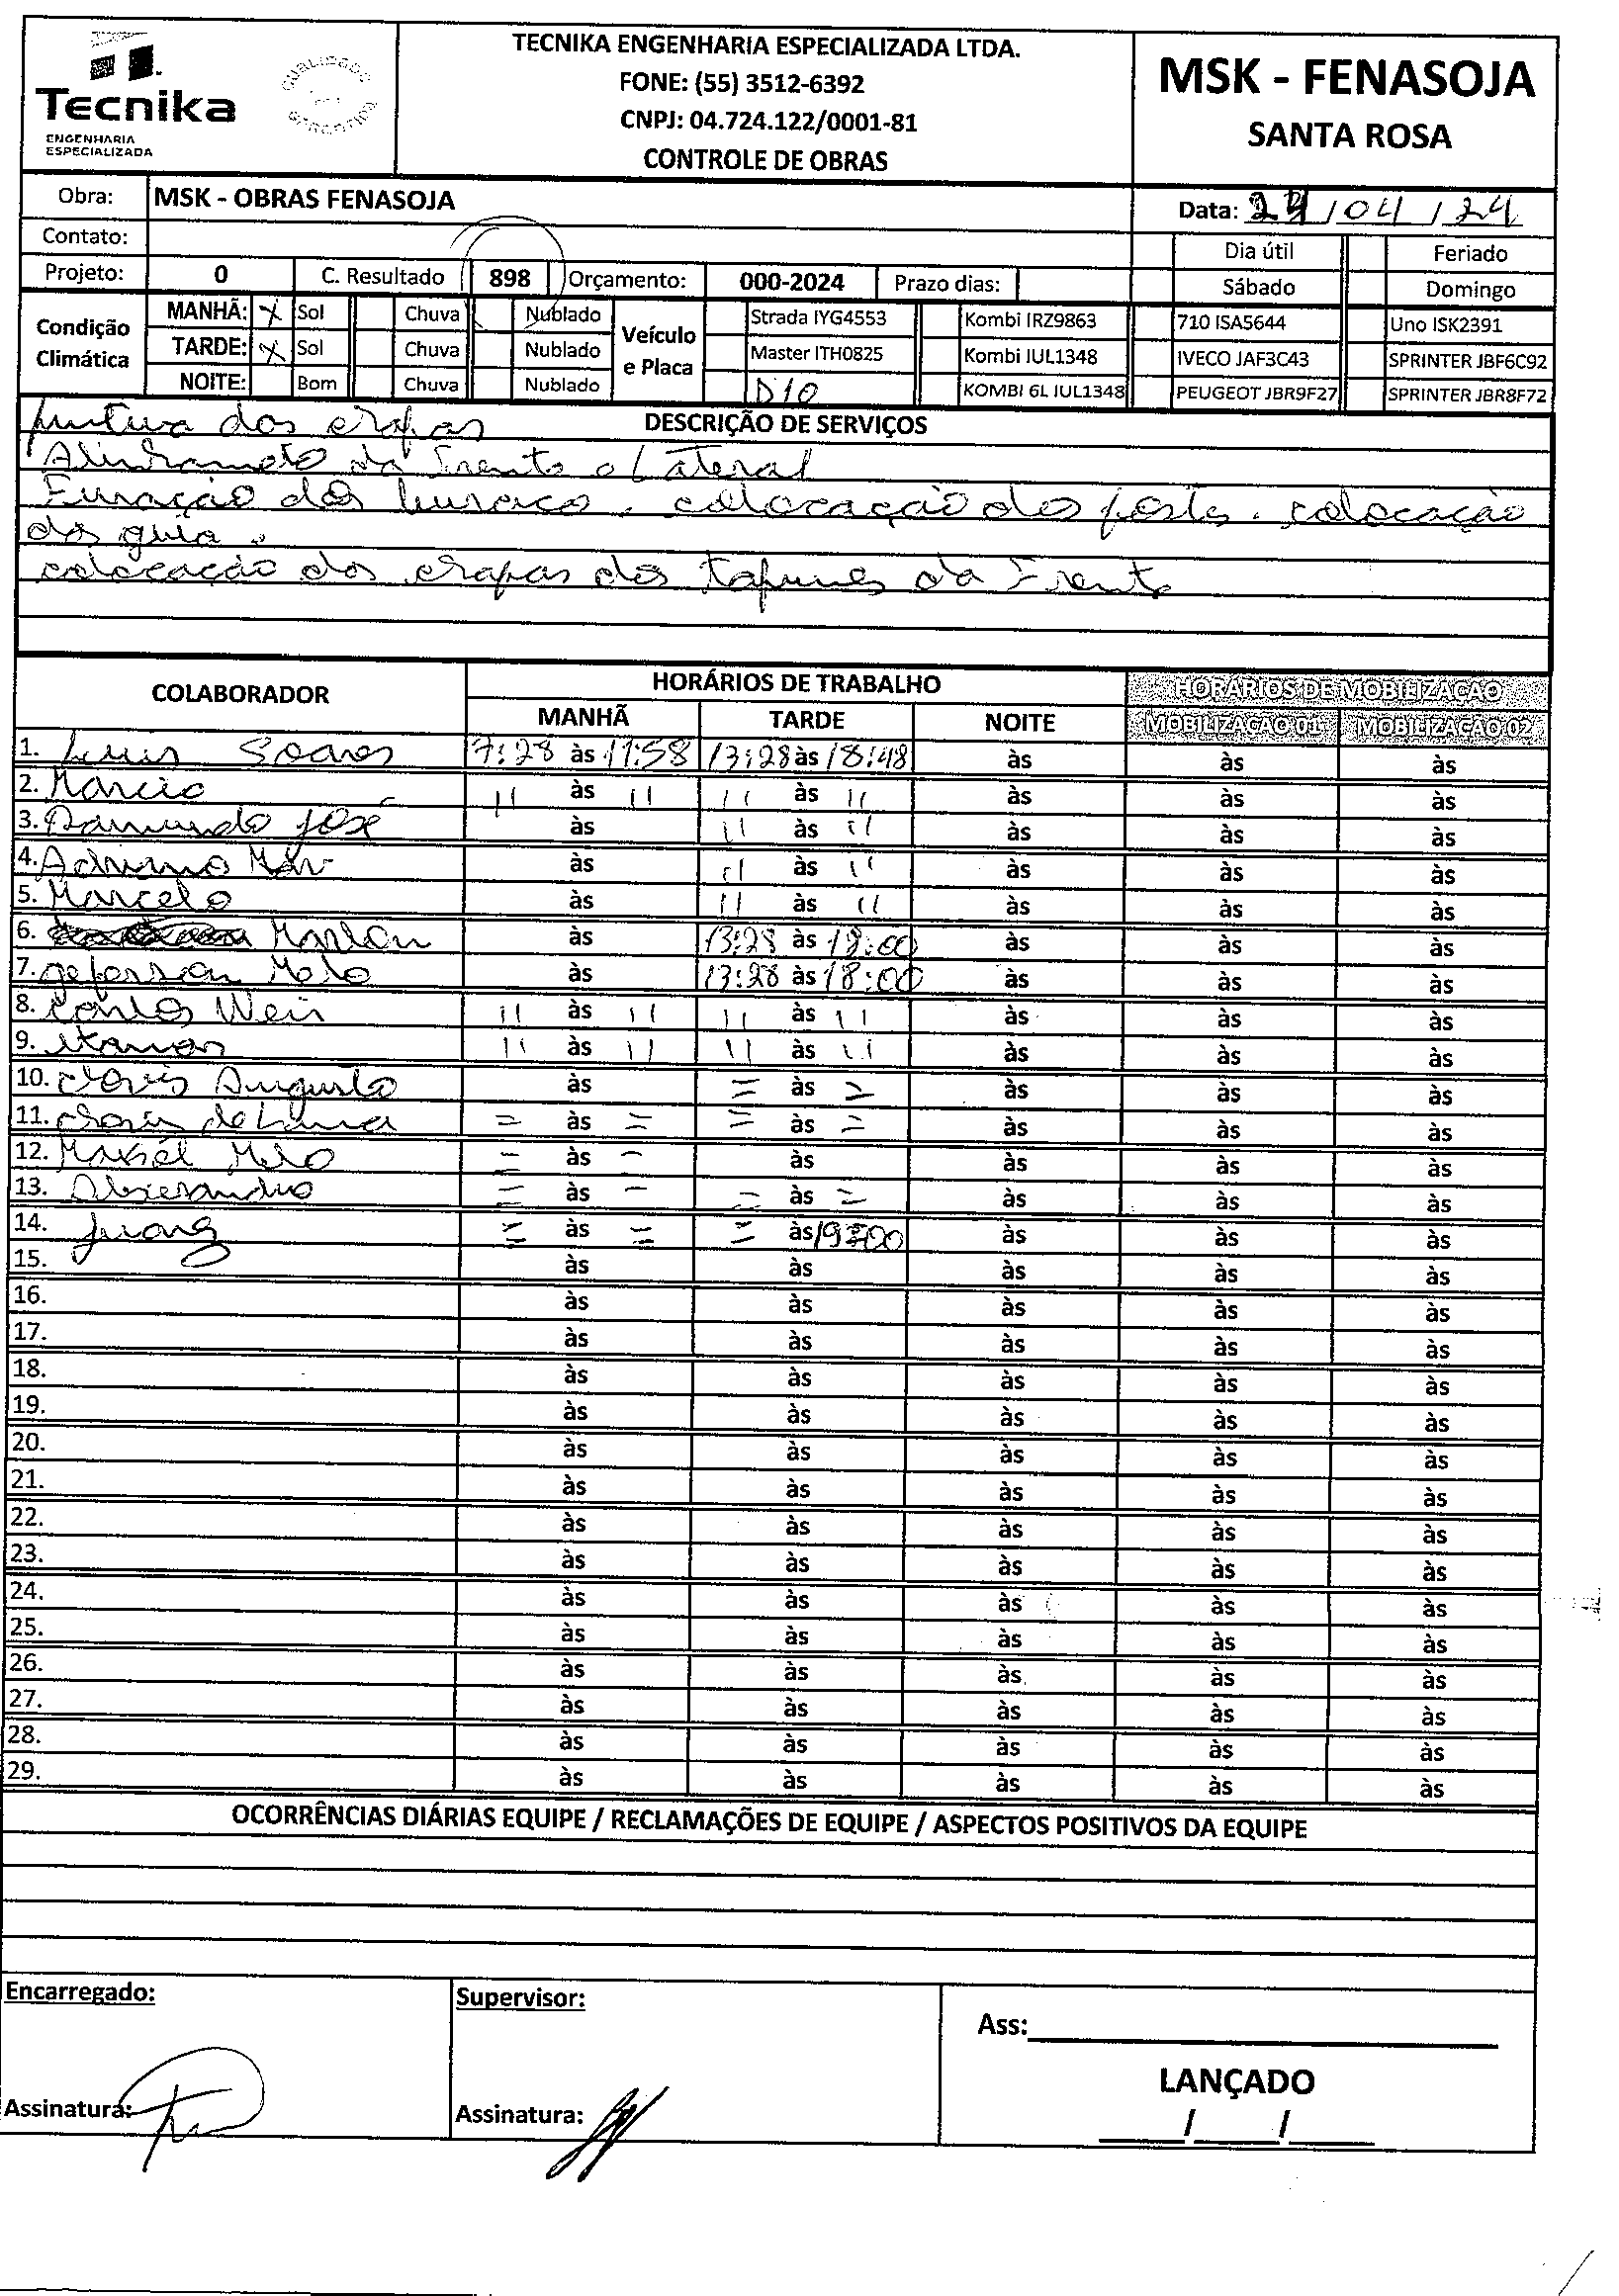 Tecnika
ENGENHARIA
ESPECIALIZADA
TECNIKA ENGENHARIA ESPECIALIZADA LTDA.
FONE: (55) 3512-6392
CNPJ: 04.724.122/0001-81
CONTROLE DE OBRAS
MSK - FENASOJA
SANTA ROSA
Obra: MSK - OBRAS FENASOJA
Data: 24/04/24
Contato:
Dia útil Feriado
Projeto: 0 C. Resultado 898 Orçamento: 000-2024 Prazo dias:
Sábado Domingo
Condição Climática
MANHÃ: X Sol Chuva Nublado
TARDE: X Sol Chuva Nublado
NOITE: Bom Chuva Nublado
Veículo e Placa
Strada IYG4553 Kombi IRZ9863 710 ISA5644 Uno ISK2391
Master ITH0825 Kombi IUL1348 IVECO JAF3C43 SPRINTER JBF6C92
D10 KOMBI 6L IUL1348 PEUGEOT JBR9F27 SPRINTER JBR8F72
DESCRIÇÃO DE SERVIÇOS
pintura dos chapas
Alinhamento da Frente e Lateral
Furação dos buraco. colocação dos poste. colocação
dos guia.
colocação dos chapas dos Tapumes da Frente
COLABORADOR HORÁRIOS DE TRABALHO HORÁRIOS DE MOBILIZAÇÃO
MANHÃ TARDE NOITE MOBILIZAÇÃO 01 MOBILIZAÇÃO 02
1. Luis Soares 7:28 às 11:58 13:28 às 18:48 às às às
2. Marcio " às " " às " às às às
3. José às " às " às às às
4. Adriano às " às " às às às
5. Marcelo às " às " às às às
6. Marlon às 13:28 às 18:00 às às às
7. Jeferson Melo às 13:28 às 18:00 às às às
8. Carlos Weis " às " " às " às às às
9. " às " " às " às às às
10. Clovis Augusto às = às = às às às
11. Clovis de Lima = às = = às = às às às
12. Melo = às = às às às às
13. Alexsandro = às = = às = às às às
14. Juarez = às = = às 19:00 às às às
15. às às às às às
16. às às às às às
17. às às às às às
18. às às às às às
19. às às às às às
20. às às às às às
21. às às às às às
22. às às às às às
23. às às às às às
24. às às às às às
25. às às às às às
26. às às às às às
27. às às às às às
28. às às às às às
29. às às às às às
OCORRÊNCIAS DIÁRIAS EQUIPE / RECLAMAÇÕES DE EQUIPE / ASPECTOS POSITIVOS DA EQUIPE
Encarregado: Supervisor:
Ass:
LANÇADO
Assinatura: Assinatura:
/ /